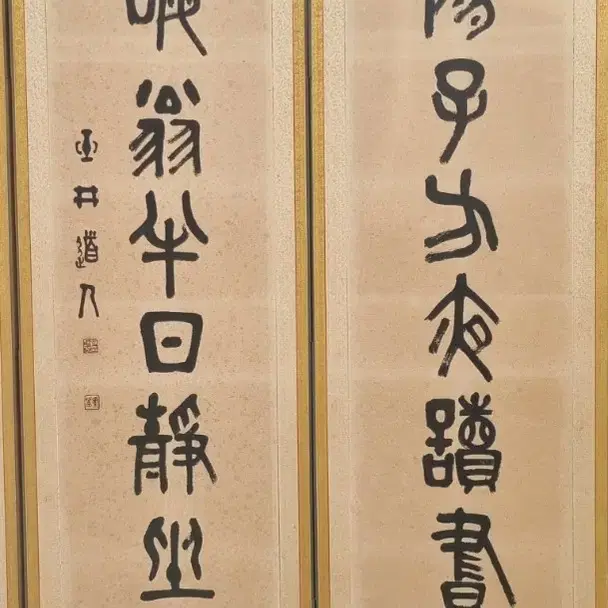 陽子方夜讀書
晦翁半日靜坐
井道人